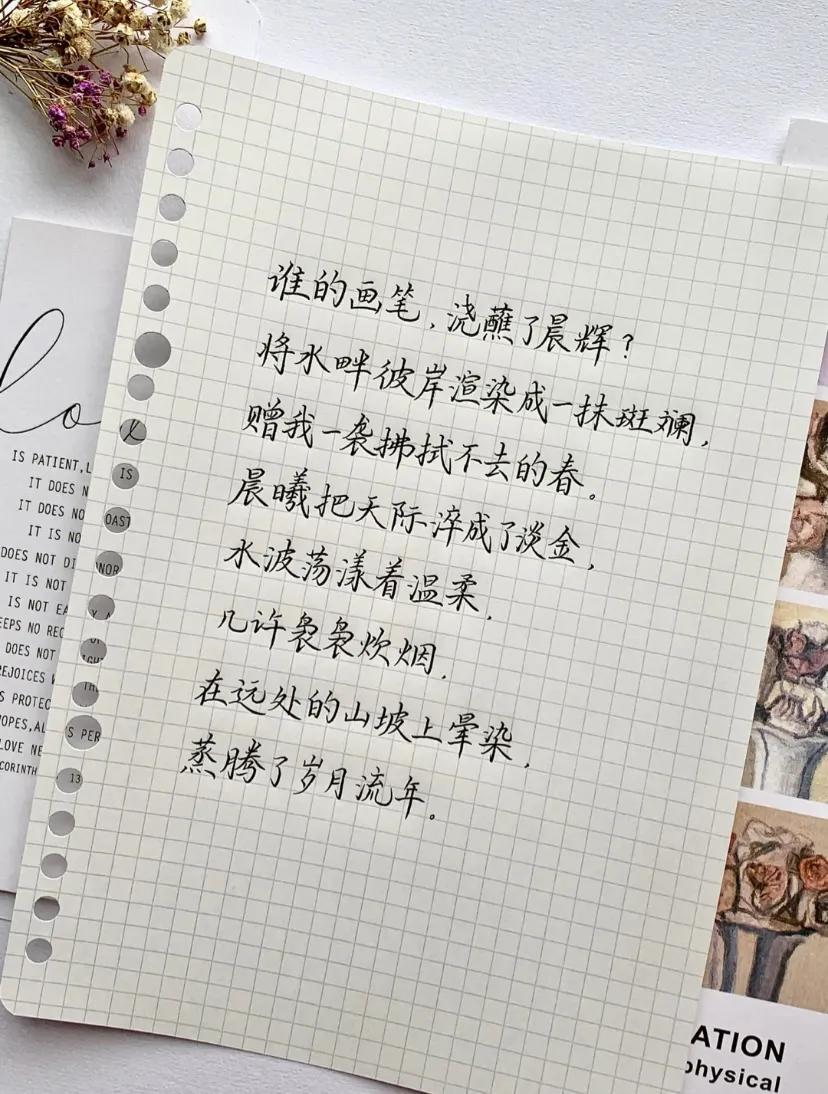 谁的画笔，浇蘸了晨辉？
将水畔彼岸渲染成一抹斑斓，
赠我一袭拂拭不去的春。
晨曦把天际淬成了淡金，
水波荡漾着温柔，
几许袅袅炊烟，
在远处的山坡上晕染，
蒸腾了岁月流年。
lo
IS PATIENT, L
IT DOES N
IT DOES NO
IT IS NO
DOES NOT DI
IT IS NOT
IS NOT EA
EEPS NO REC
DOES NOT
REJOICES W
S PROTEC
HOPES, AL
LOVE NE
CORINTH
IS
OAST
NOR
S PER
13
ATION
physical